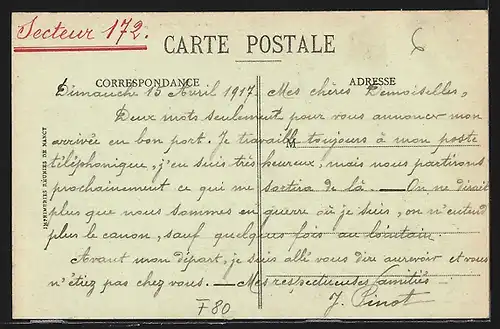 Secteur 172.
CARTE POSTALE
6
CORRESPONDANCE
ADRESSE
Dimanche 15 Avril 1917. Mes chères Demoiselles,
Deux mots seulement pour vous annoncer mon
arrivée en bon port. Je travaille toujours à mon poste
téléphonique, j'en suis très heureux; mais nous partirons
prochainement ce qui me sortira de là. — On ne dirait
plus que nous sommes en guerre où je suis, on n'entend
plus le canon, sauf quelques fois au lointain.
Avant mon départ, je suis allé vous dire aurevoir et vous
n'étiez pas chez vous. — Mes respectueuses amitiés
J. Pinot
M
F80
IMPRIMERIES RÉUNIES DE NANCY